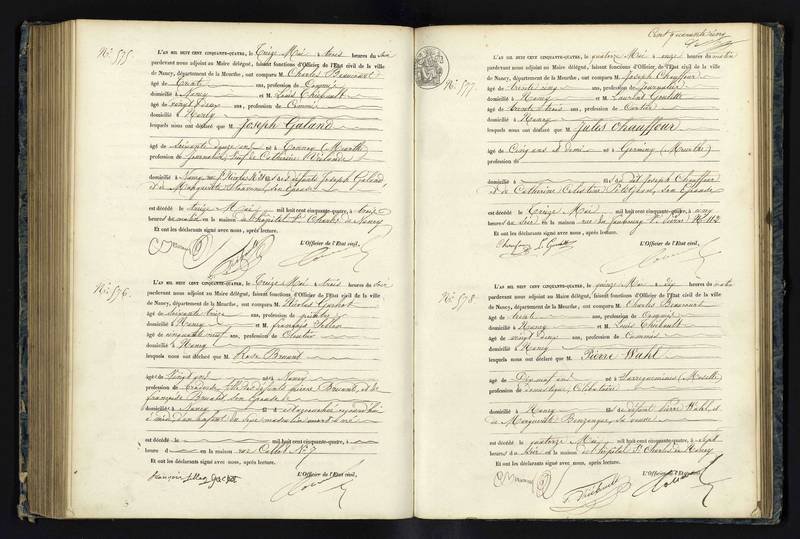 N° 575
L'AN MIL HUIT CENT CINQUANTE-QUATRE, le treize Mai à trois heures du soir
pardevant nous adjoint au Maire délégué, faisant fonctions d'Officier de l'Etat civil de la ville
de Nancy, département de la Meurthe, ont comparu M. Charles Beaucourt
âgé de trente ans, profession de Commis
domicilié à Nancy et M. Louis Thiébault
âgé de vingt deux ans, profession de Commis
domicilié à Nancy
lesquels nous ont déclaré que M. Joseph Galand
âgé de soixante douze ans né à (Meurthe)
profession de journalier, veuf de Catherine
domicilié à Nancy défunts Joseph Galand
et de Marguerite son épouse
est décédé le treize Mai mil huit cent cinquante-quatre, à
heures du matin en la maison de l'hôpital St Charles de Nancy
Et ont les déclarants signé avec nous, après lecture.
L'Officier de l'Etat civil,
N° 576
L'AN MIL HUIT CENT CINQUANTE-QUATRE, le treize Mai à trois heures du soir
pardevant nous adjoint au Maire délégué, faisant fonctions d'Officier de l'Etat civil de la ville
de Nancy, département de la Meurthe, ont comparu M. Nicolas
âgé de soixante treize ans, profession de
domicilié à Nancy et M. françois
âgé de cinquante neuf ans, profession de
domicilié à Nancy
lesquels nous ont déclaré que M. Rose Bruant
âgé de vingt ans née à Nancy
profession de brodeuse, fille de défunts Bruant, et de
françoise son épouse
domicilié à Nancy est accouchée aujourd'hui
à midi, d'un enfant du sexe masculin mort né
est décédé le mil huit cent cinquante-quatre, à
heure d en la maison rue Callot N° 7
Et ont les déclarants signé avec nous, après lecture.
L'Officier de l'Etat civil,
Cent quarante cinq
N° 577
L'AN MIL HUIT CENT CINQUANTE-QUATRE, le quatorze Mai à onze heures du matin
pardevant nous adjoint au Maire délégué, faisant fonctions d'Officier de l'Etat civil de la ville
de Nancy, département de la Meurthe, ont comparu M. Joseph Chauffour
âgé de trente cinq ans, profession de journalier
domicilié à Nancy et M. Laurent
âgé de trente trois ans, profession de
domicilié à Nancy
lesquels nous ont déclaré que M. Jules Chauffour
âgé de cinq ans et demi né à Germiny (Meurthe)
profession de
domicilié à dit Joseph Chauffour
et de Catherine Célestine son épouse
est décédé le treize Mai mil huit cent cinquante-quatre, à cinq
heures du soir en la maison rue du faubourg St Pierre N° 112
Et ont les déclarants signé avec nous, après lecture.
L'Officier de l'Etat civil,
N° 578
L'AN MIL HUIT CENT CINQUANTE-QUATRE, le quinze Mai à dix heures du matin
pardevant nous adjoint au Maire délégué, faisant fonctions d'Officier de l'Etat civil de la ville
de Nancy, département de la Meurthe, ont comparu M. Charles Beaucourt
âgé de trente ans, profession de Commis
domicilié à Nancy et M. Louis Thiébault
âgé de vingt deux ans, profession de Commis
domicilié à Nancy
lesquels nous ont déclaré que M. Pierre Wahl
âgé de Dix neuf ans né à Sarreguemines (Moselle)
profession de domestique, Célibataire
domicilié à Nancy de défunt Pierre Wahl, et
de Marguerite sa veuve
est décédé le quatorze Mai mil huit cent cinquante-quatre, à sept
heures du soir en la maison de l'hôpital St Charles de Nancy
Et ont les déclarants signé avec nous, après lecture.
L'Officier de l'Etat civil,
L. Thiébault